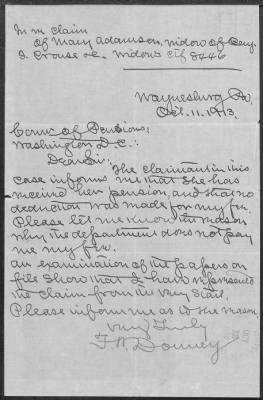 In re claim
of Mary Adamson, widow of Benj.
F. Crouse &c. Widow's Ctf 8446
Waynesburg Pa.
Oct. 11. 1913.
Com'r of Pensions:
Washington D.C.:
Dear Sir: The claimant in this
case informs me that she has
received her pension, and that no
deduction was made for my fee.
Please let me know the reason
why the department does not pay
me my fee.
An examination of the papers on
file show that I have represented
the claim from the very start.
Please inform me as to the reason.
Very Truly
F. W. Downey